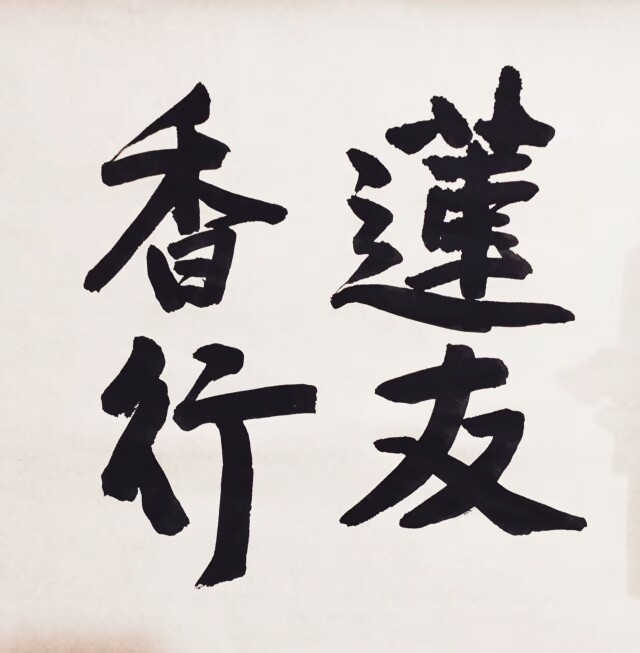 蓮友
香行